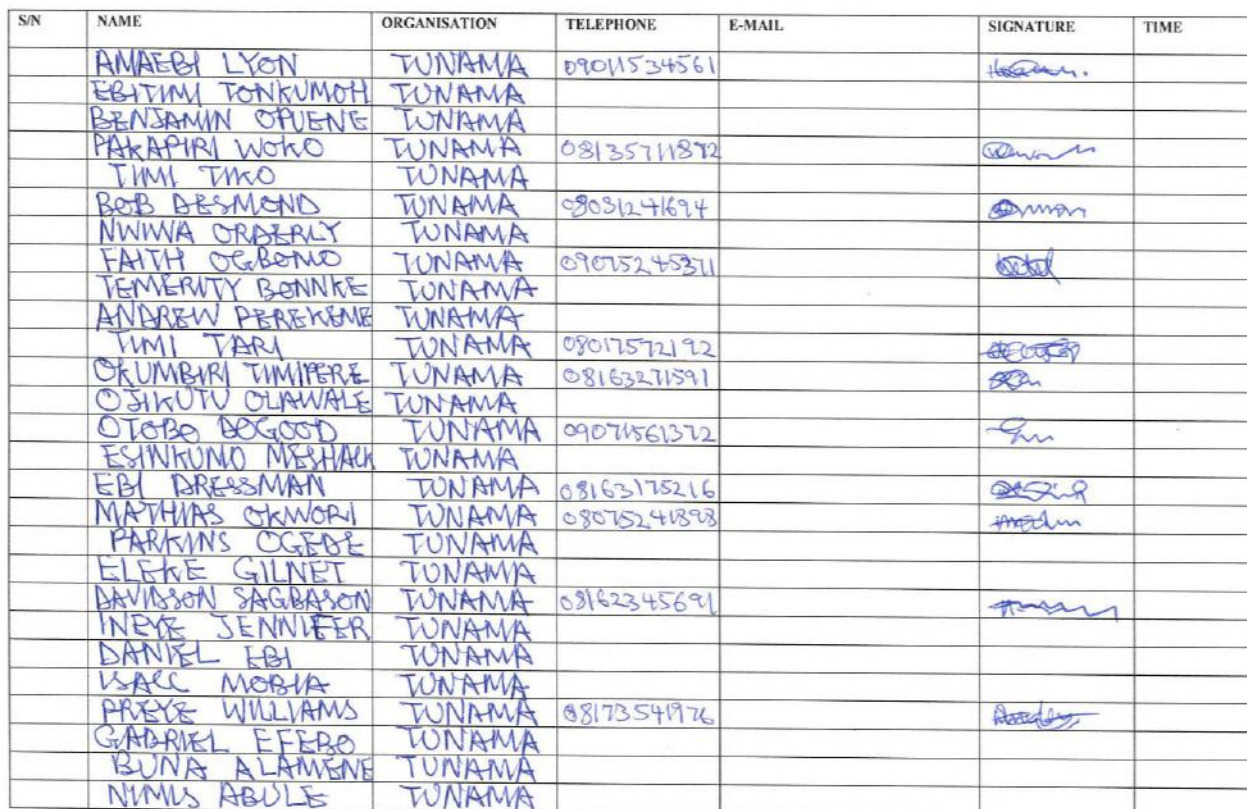 S/N NAME ORGANISATION TELEPHONE E-MAIL SIGNATURE TIME
AMAEBI LYON TUNAMA 09011534561
EBITIMI TONKUMOH TUNAMA
BENJAMIN OPUENE TUNAMA
PAKAPIRI WOKO TUNAMA 08135711872
TIMI TIKO TUNAMA
BOB DESMOND TUNAMA 08031241694
NWIWA ORDERLY TUNAMA
FAITH OGBOMO TUNAMA 09075245371
TEMERITY BONNKE TUNAMA
ANDREW PEREKEME TUNAMA
TIMI TARI TUNAMA 08017572192
OKUMBIRI TIMIPERE TUNAMA 08163271591
OJIKUTU OLAWALE TUNAMA
OTOBO DOGOOD TUNAMA 09071561372
ESINKUMO MESHACK TUNAMA
EBI DRESSMAN TUNAMA 08163175216
MATHIAS OKWORI TUNAMA 08075241898
PARKINS OGEDE TUNAMA
ELEKE GILNET TUNAMA
DAVIDSON SAGBASON TUNAMA 08162345691
INEYE JENNIFER TUNAMA
DANIEL EBI TUNAMA
ISACC MOBIA TUNAMA
PREYE WILLIAMS TUNAMA 08173541976
GABRIEL EFEBO TUNAMA
BUNA ALAMENE TUNAMA
NIMIS ABULE TUNAMA